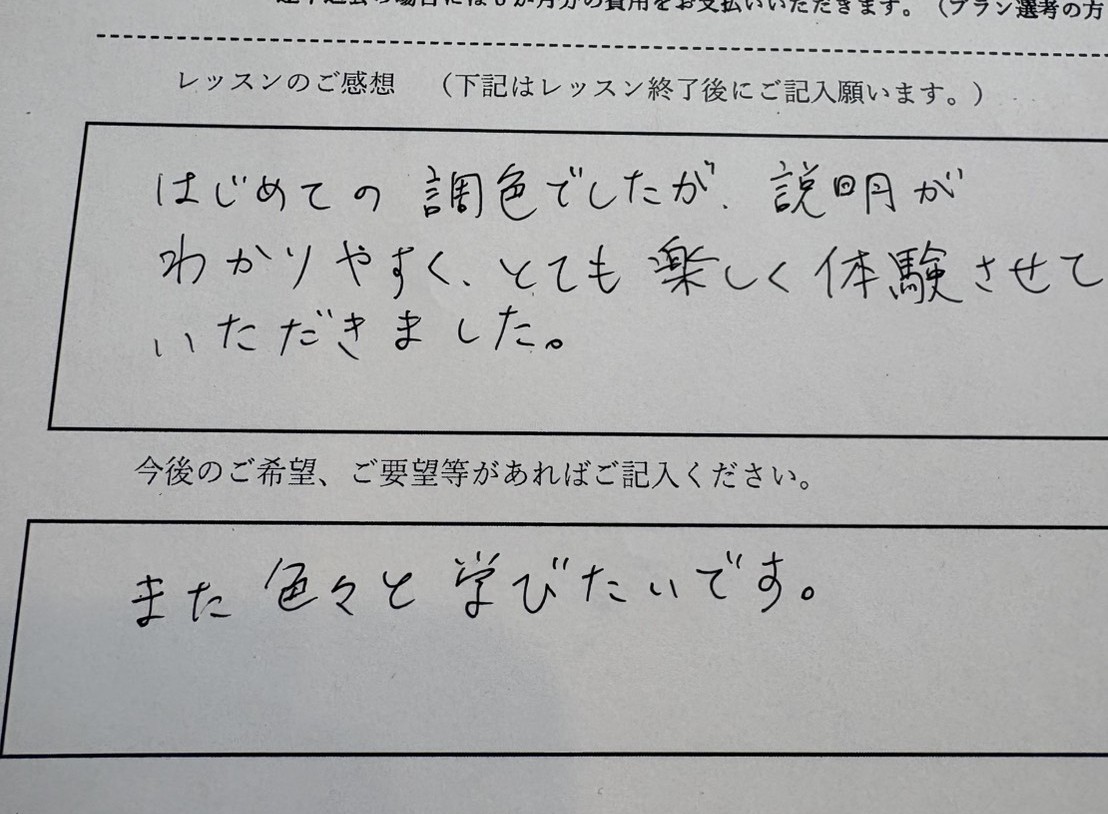 の場合には6か月分の費用をお支払いいただきます。（プラン選考の方
レッスンのご感想　（下記はレッスン終了後にご記入願います。）
はじめての調色でしたが、説明が
わかりやすく、とても楽しく体験させて
いただきました。
今後のご希望、ご要望等があればご記入ください。
また色々と学びたいです。